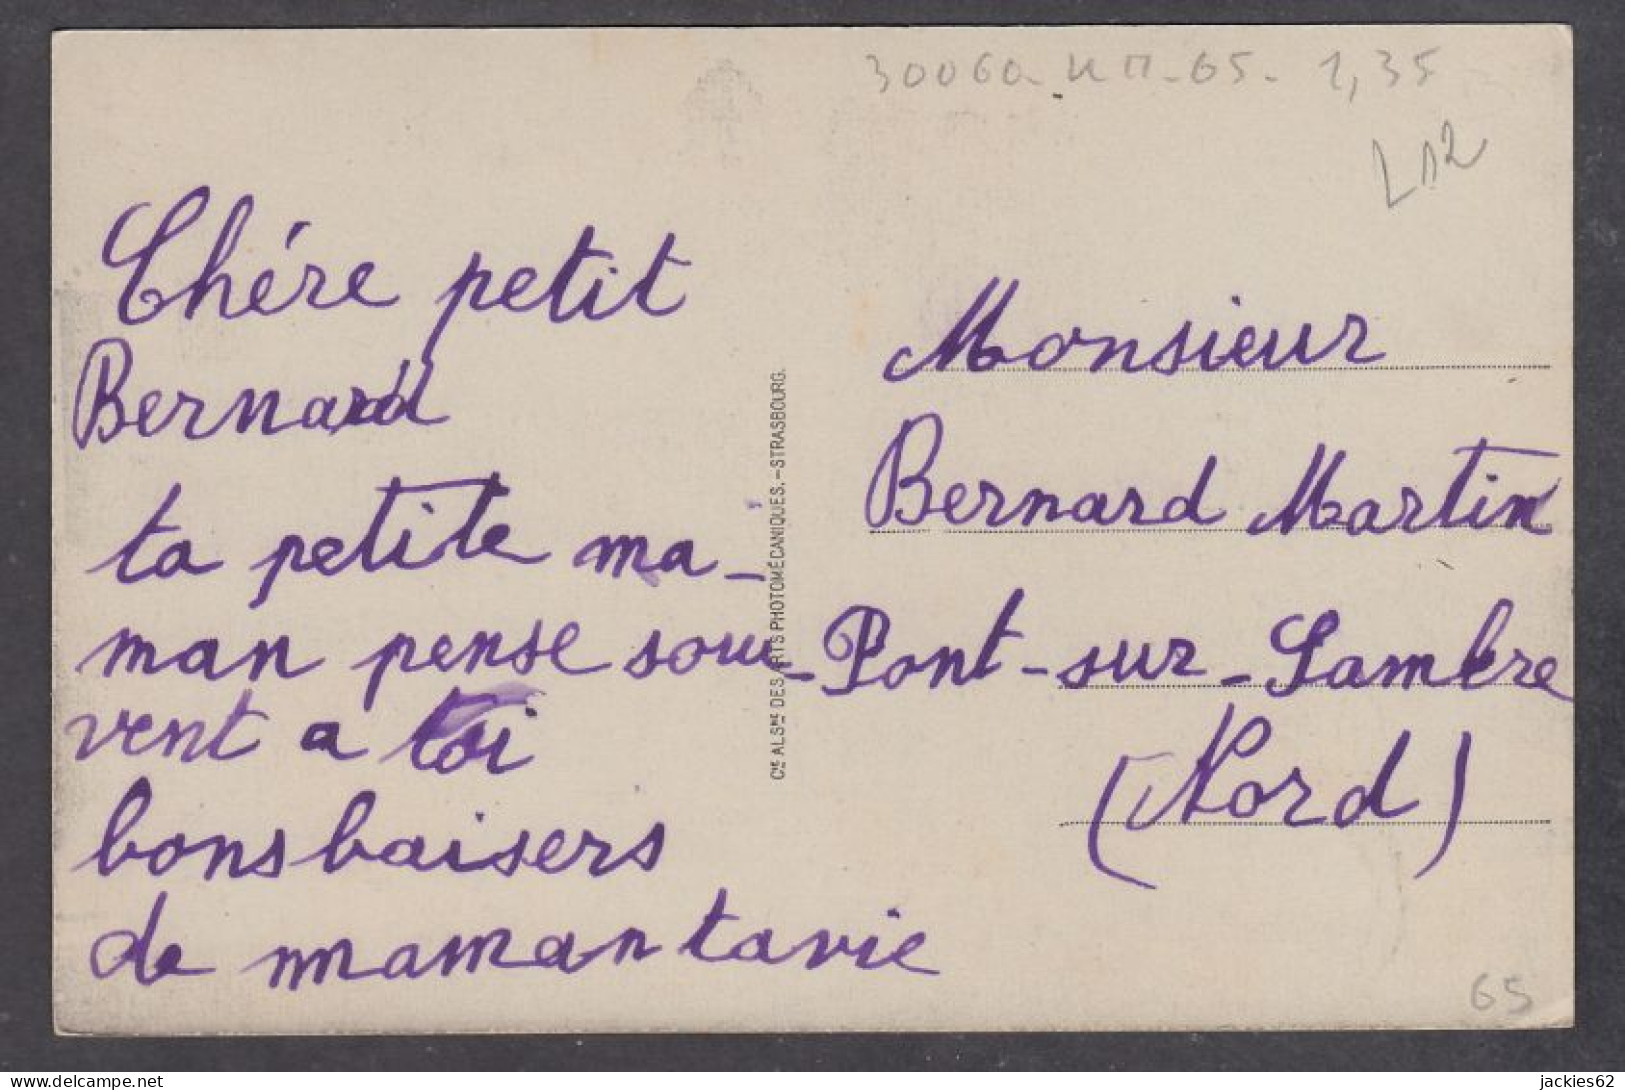 30060 - KM - 65 - 1,35
Chére petit
Bernard
ta petite ma-
man pense sou-
vent a toi
bons baisers
de maman tavie
Cie ALSNE DES ARTS PHOTOMÉCANIQUES. - STRASBOURG.
Monsieur
Bernard Martin
Pont-sur-Sambre
(Nord)
65
jackies62